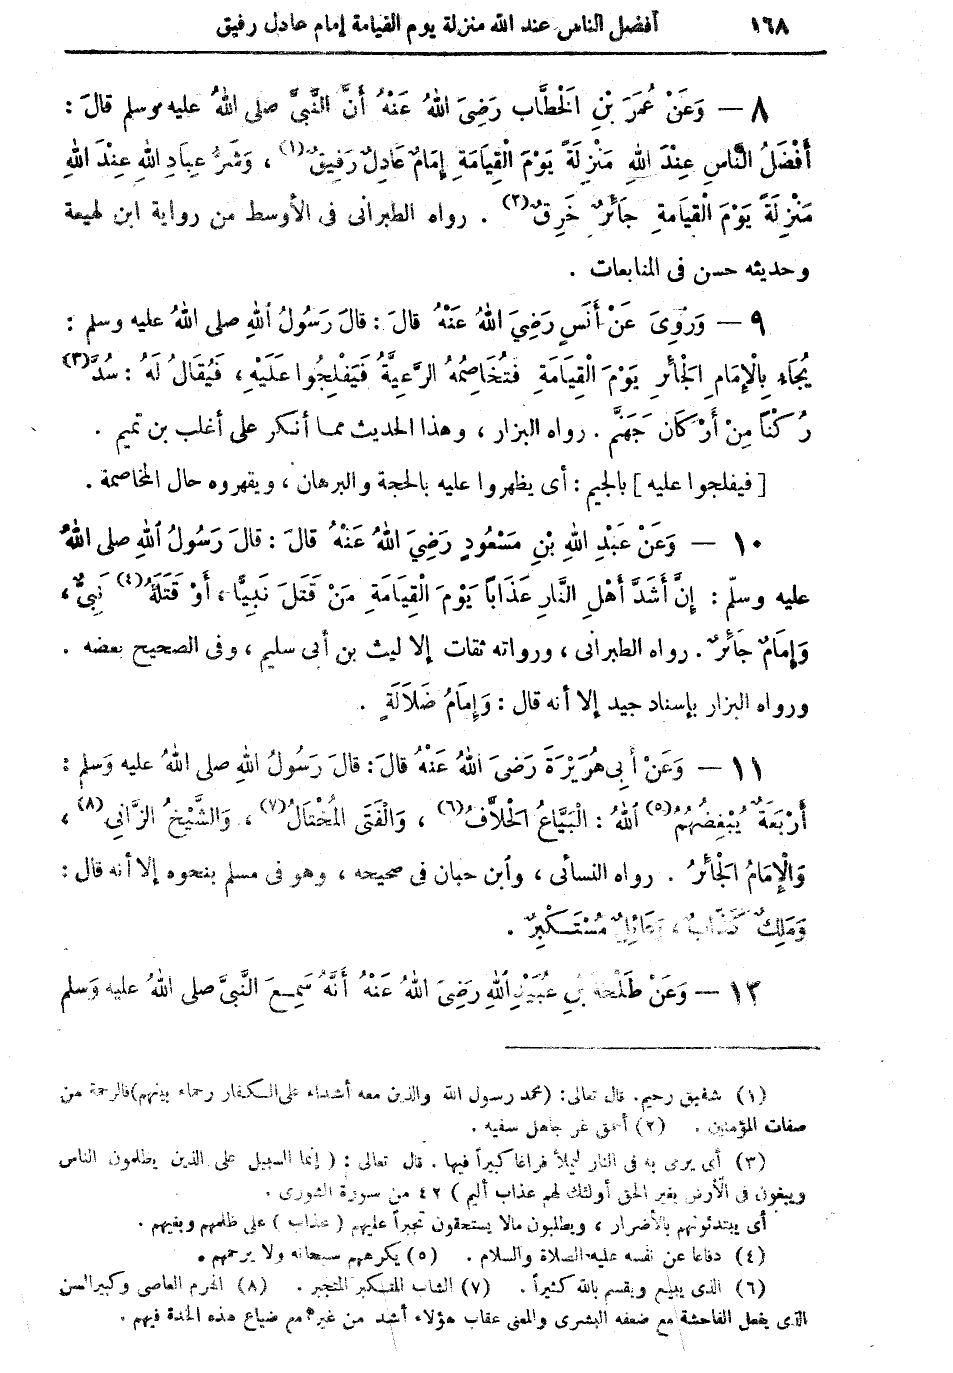 ١٦٨ أفضل الناس عند الله منزلة يوم القيامة إمام عادل رفيق
٨ — وَعَنْ عُمَرَ بْنِ الْخَطَّابِ رَضِيَ اللهُ عَنْهُ أَنَّ النَّبِيَّ صلى اللهُ عليه وسلم قالَ :
أَفْضَلُ النَّاسِ عِنْدَ اللهِ مَنْزِلَةً يَوْمَ الْقِيَامَةِ إِمَامٌ عَادِلٌ رَفِيقٌ(١) ، وَشَرُّ عِبَادِ اللهِ عِنْدَ اللهِ
مَنْزِلَةً يَوْمَ الْقِيَامَةِ جَائِرٌ خَرِقٌ(٢) . رواه الطبرانى فى الأوسط من رواية ابن لهيعة
وحديثه حسن فى المتابعات .
٩ — وَرُوِيَ عَنْ أَنَسٍ رَضِيَ اللهُ عَنْهُ قالَ : قالَ رَسُولُ اللهِ صلى اللهُ عليه وسلم :
يُجَاءُ بِالْإِمَامِ الْجَائِرِ يَوْمَ الْقِيَامَةِ فَتُخَاصِمُهُ الرَّعِيَّةُ فَيَفْلِجُوا عَلَيْهِ ، فَيُقَالُ لَهُ : سُدَّ(٣)
رُكْنًا مِنْ أَرْكَانِ جَهَنَّمَ . رواه البزار ، وهذا الحديث مما أنكر على أغلب بن تميم .
[ فيفلجوا عليه ] بالجيم : أى يظهروا عليه بالحجة والبرهان ، ويقهروه حال المخاصمة .
١٠ — وَعَنْ عَبْدِ اللهِ بْنِ مَسْعُودٍ رَضِيَ اللهُ عَنْهُ قالَ : قالَ رَسُولُ اللهِ صلى اللهُ
عليه وسلّم : إِنَّ أَشَدَّ أَهْلِ النَّارِ عَذَابًا يَوْمَ الْقِيَامَةِ مَنْ قَتَلَ نَبِيًّا ، أَوْ قَتَلَهُ(٤) نَبِيٌّ ،
وَإِمَامٌ جَائِرٌ . رواه الطبرانى ، ورواته ثقات إلا ليث بن أبى سليم ، وفى الصحيح بعضه .
ورواه البزار بإسناد جيد إلا أنه قال : وَإِمَامُ ضَلَالَةٍ .
١١ — وَعَنْ أَبِى هُرَيْرَةَ رَضِىَ اللهُ عَنْهُ قالَ : قالَ رَسُولُ اللهِ صلى اللهُ عليه وَسلم :
أَرْبَعَةٌ يُبْغِضُهُمُ(٥) اللهُ : الْبَيَّاعُ الْحَلَّافُ(٦) ، وَالْفَتَى الْمُخْتَالُ(٧) ، وَالشَّيْخُ الزَّانِي(٨) ،
وَالْإِمَامُ الْجَائِرُ . رواه النسائى ، وابن حبان فى صحيحه ، وهو فى مسلم بنحوه إلا أنه قال :
وَمَلِكٌ كَذَّابٌ ، وَعَائِلٌ مُسْتَكْبِرٌ .
١٣ — وَعَنْ طَلْحَةَ بْنِ عُبَيْدِ اللهِ رَضِىَ اللهُ عَنْهُ أَنَّهُ سَمِعَ النَّبِيَّ صلى اللهُ عليه وَسلم
(١) شفيق رحيم. قال تعالى : (محمد رسول الله والذين معه أشداء على الكفار رحماء بينهم) فالرحمة من
صفات المؤمنين . (٢) أحمق غر جاهل سفيه .
(٣) أى يرمى به فى النار ليملأ فراغا كبيراً فيها . قال تعالى : ( إنما السبيل على الذين يظلمون الناس
ويبغون فى الأرض بغير الحق أولئك لهم عذاب أليم ) ٤٢ من سورة الشورى .
أى يبتدئونهم بالأضرار ، ويطلبون مالا يستحقون تجبراً عليهم ( عذاب ) على ظلمهم وبغيهم .
(٤) دفاعا عن نفسه عليه الصلاة والسلام . (٥) يكرههم سبحانه ولا يرحمهم .
(٦) الذى يبيع ويقسم بالله كثيراً . (٧) الشاب المتكبر المتجبر . (٨) الهرم العاصى وكبير السن
الذى يفعل الفاحشة مع ضعفه البشرى والمعنى عقاب هؤلاء أشد من غيرهم مع ضياع هذه الحدة فيهم .